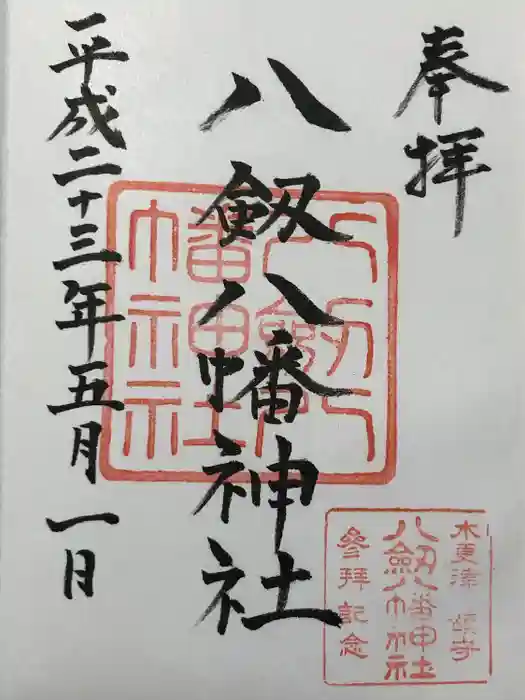 奉拝
八劔八幡神社
平成二十三年五月一日
八劔八幡神社
木更津
八劔八幡神社
參拜記念